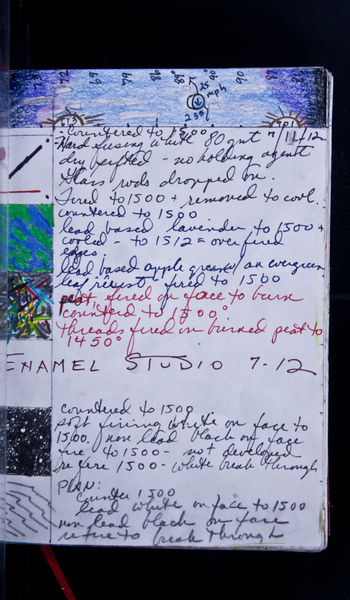 73 72 69 96 98 88 90 09 90
25
mph
239
73 91
- Countered to 1500 7/11/12
Hard fusing white 80 grit
dry sifted - no holding agent
Glass rods dropped on.
Fired to 1500 + removed to cool.
countered to 1500
lead based lavender to 1500 +
cooled - to 1512 = over fired
edges
lead based apple green w/ an evergreen
leaf resist - fired to 1500
peat fired on face to burn
counterd to 1500°
threads fired on burned peat to
1450°
ENAMEL STUDIO 7-12
countered to 1500
soft firing white on face to
1500. non lead black on face
fire to 1500 - not developed
refire 1500 - white break through
PLAN:
Counter 1500
lead white on face to 1500
non lead black on face
refire to break through